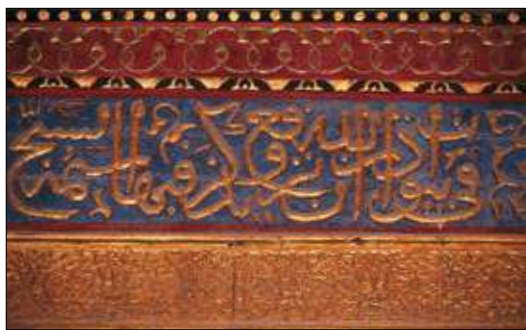 في بيوت اذن الله ان ترفع ويذكر فيها اسمه يسبح له